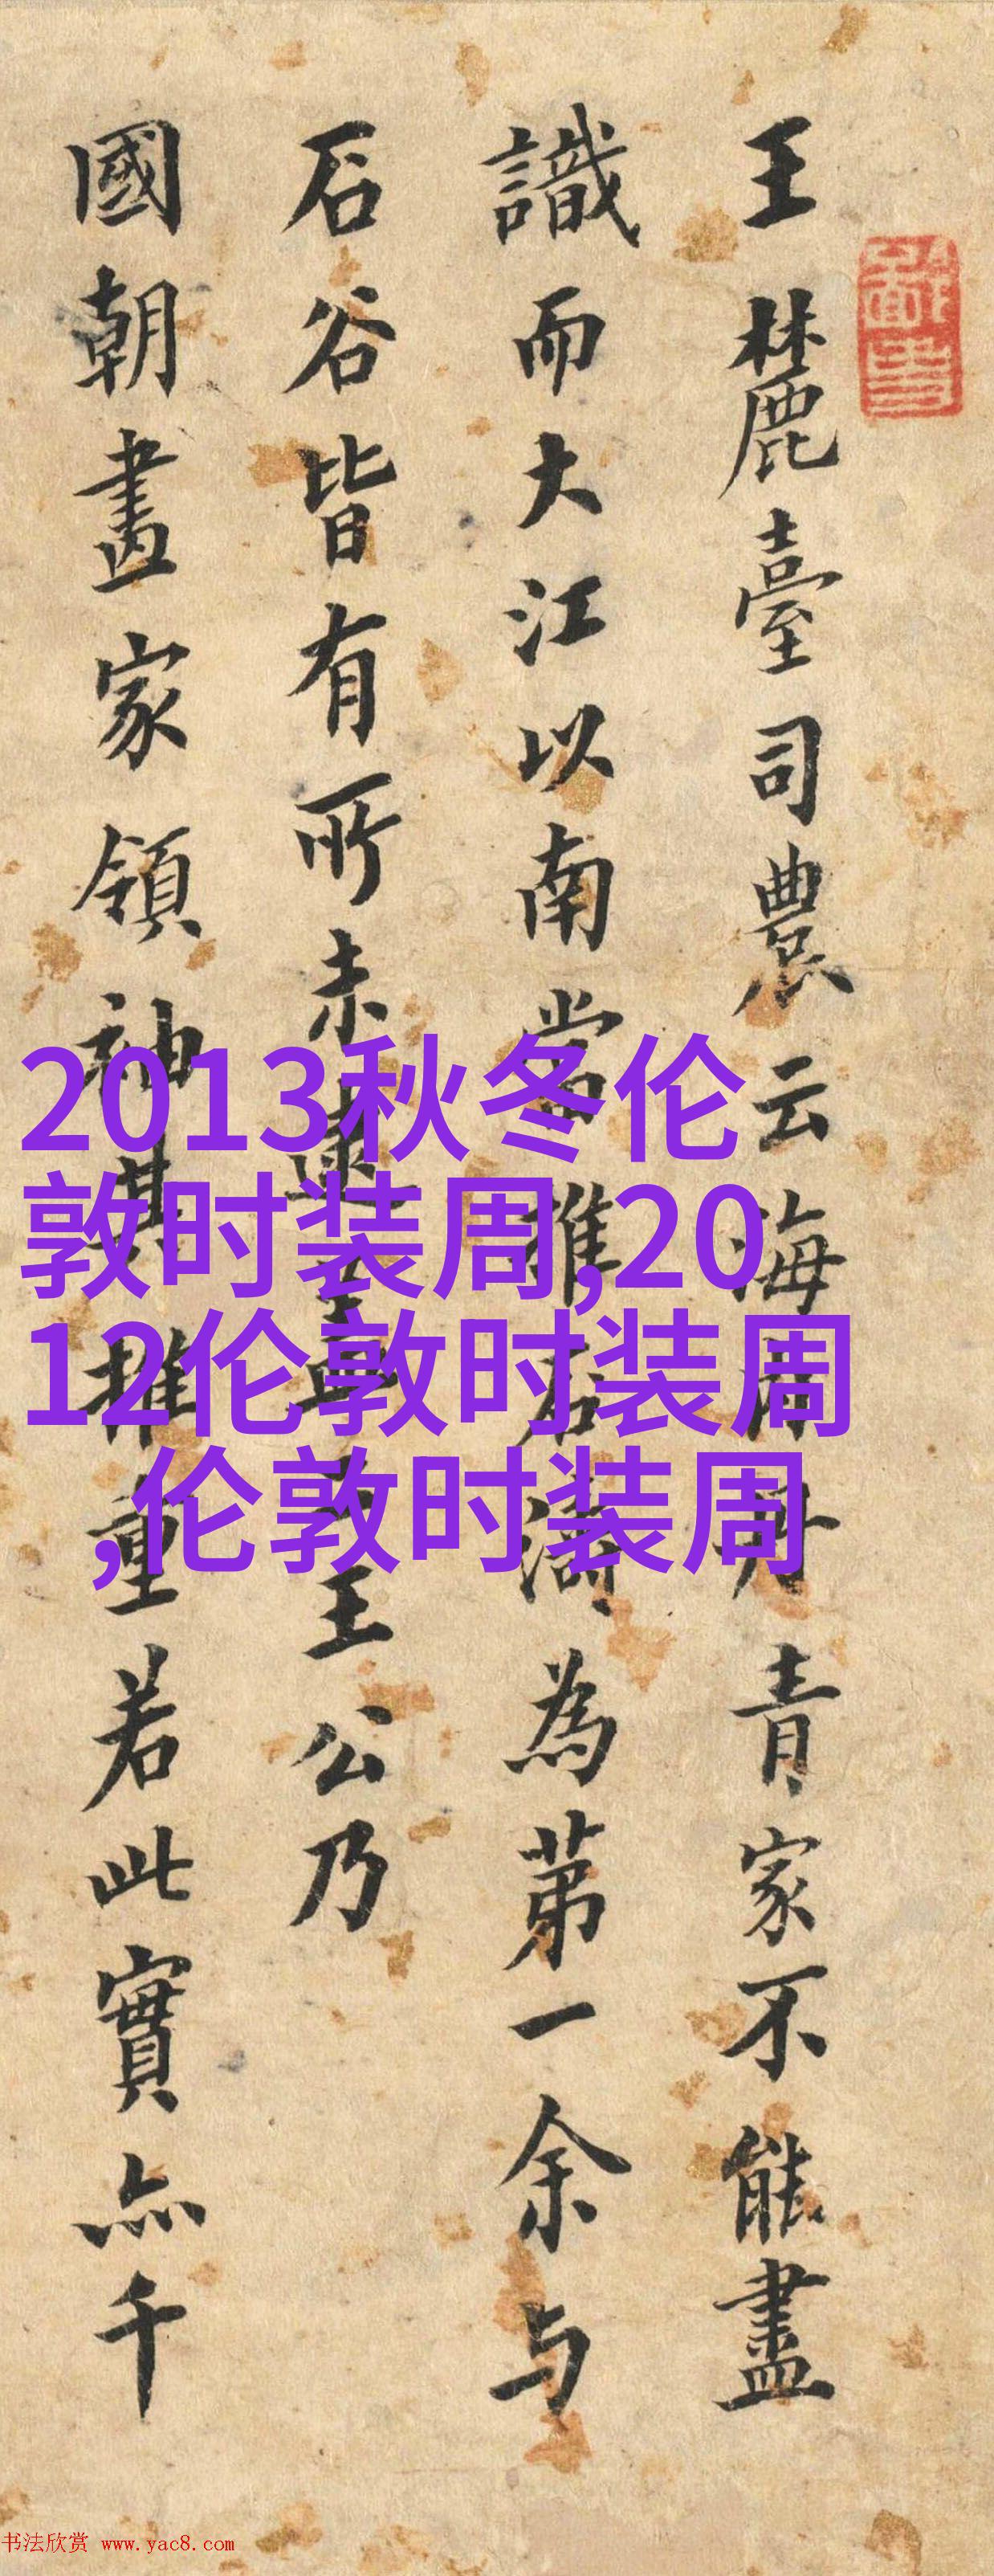 王麓臺司農云海內丹青家不能盡
識而大江以南當推石濤為第一余与
石谷皆有所未逮王公乃
國朝畫家領袖其推重若此實亦千
2013秋冬伦
敦时装周,20
12伦敦时装周
,伦敦时装周
书法欣赏 www.yac8.com